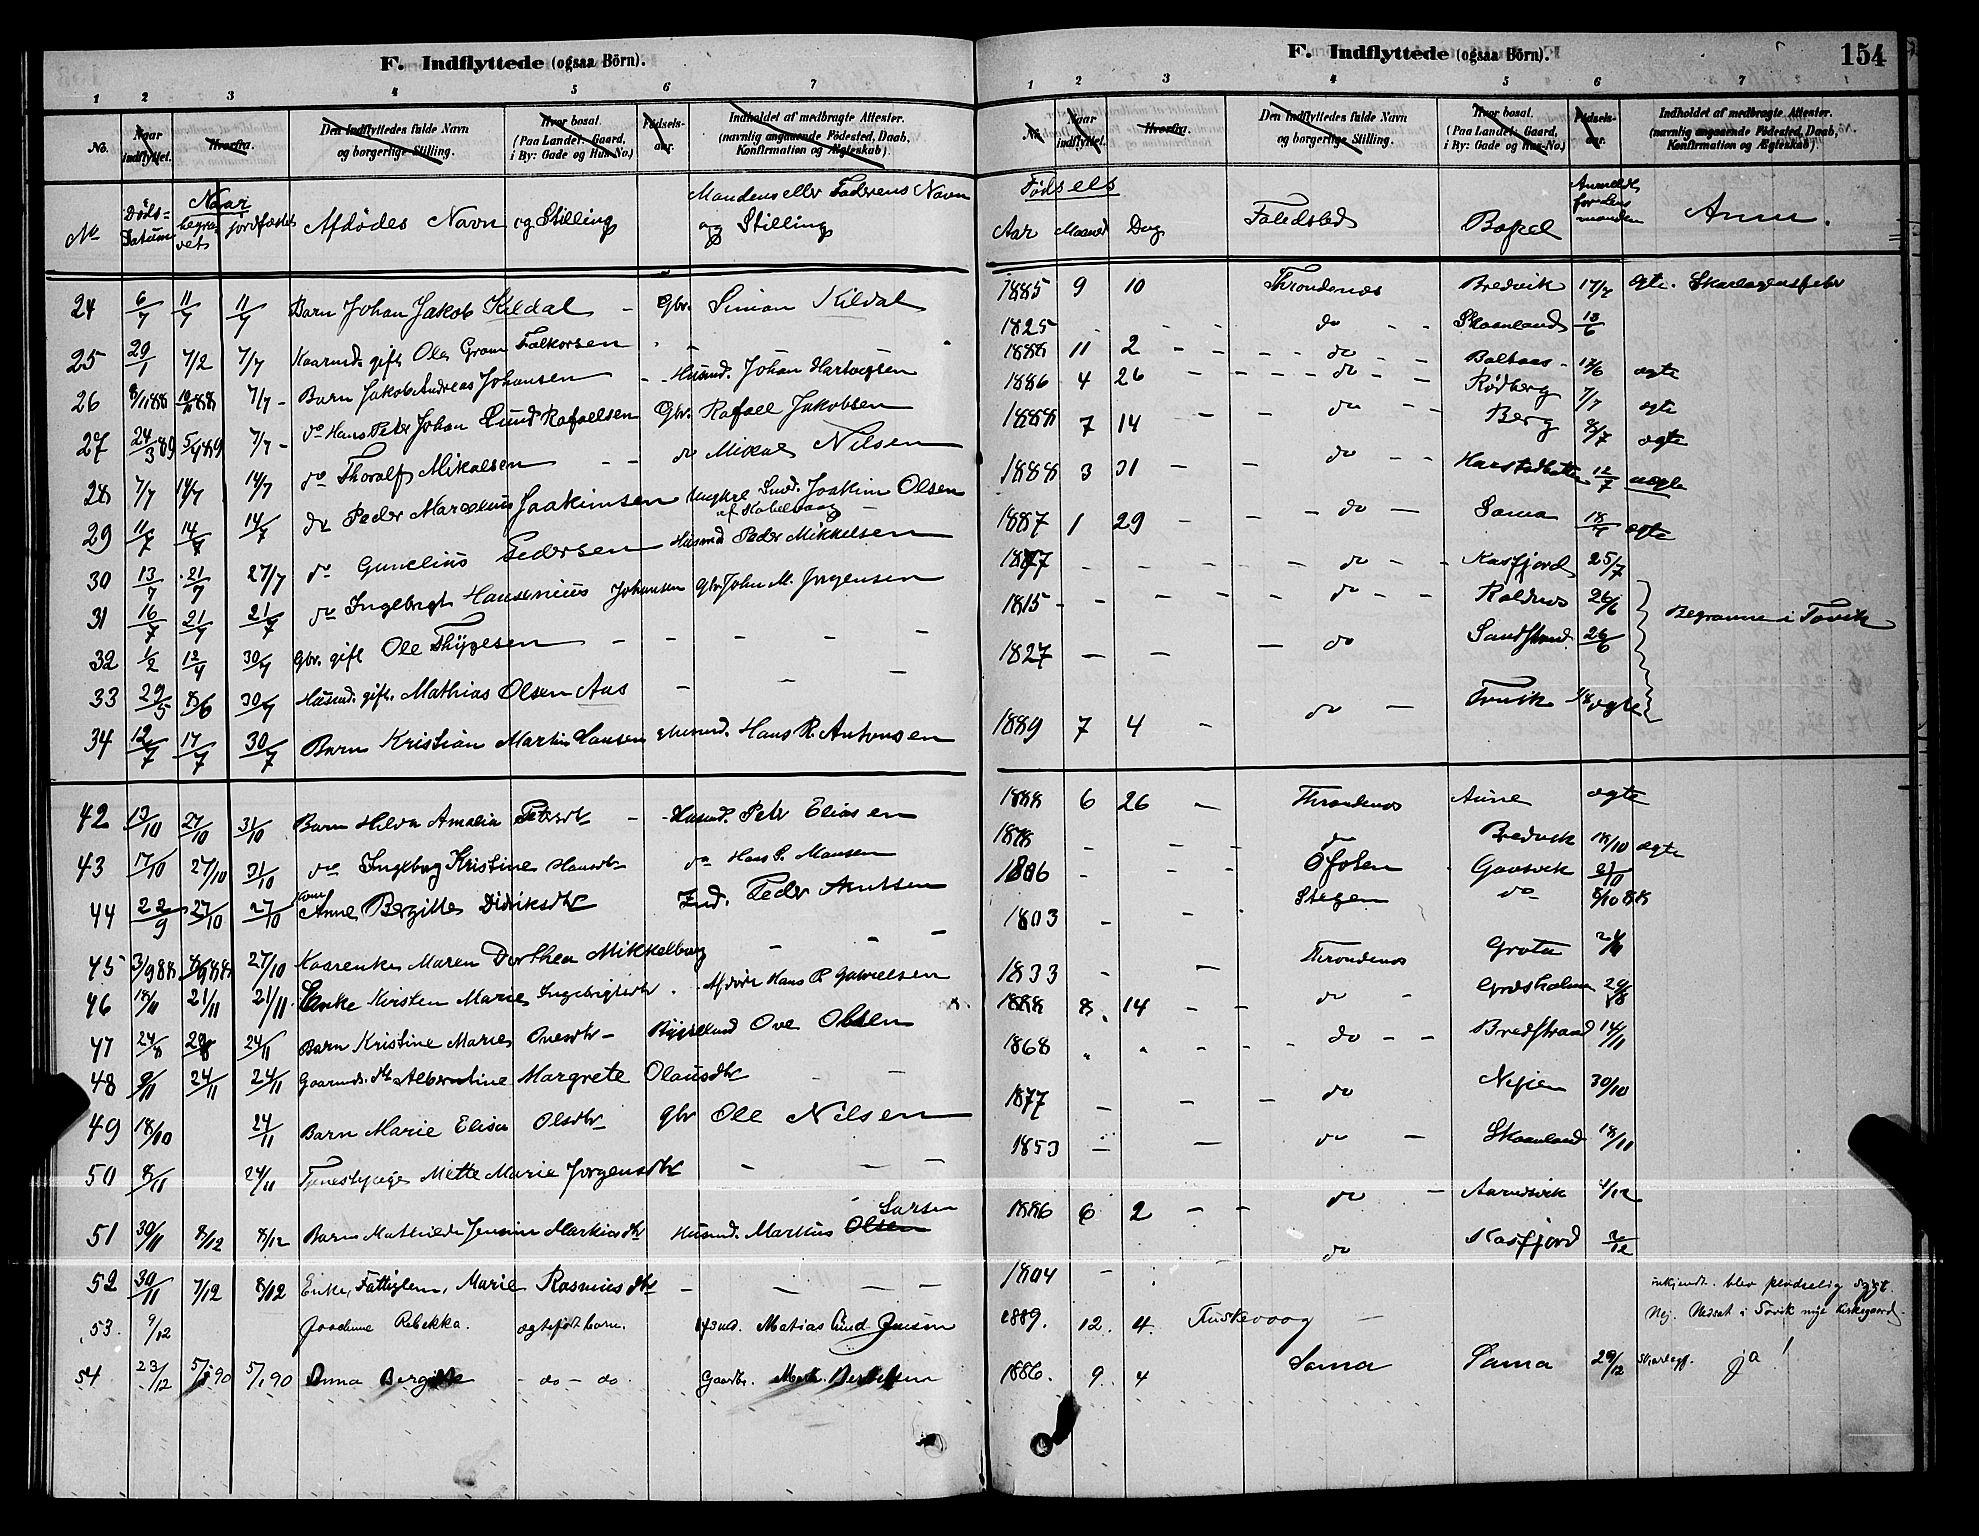 F. Indflyttede (ogsaa Börn).
1 2 3 4 5 6 7
No. Naar indflyttet. Hvorfra. Den Indflyttedes fulde Navn og borgerlige Stilling. Hvor bosat. (Paa Landet: Gaard, i By: Gade og Hus-No.) Fødsels-aar. Indholdet af medbragte Attester. (navnlig angaaende Födested, Daab, Konfirmation og Ægteskab).
No Döds=Datum Naar begravet jordfæstet Afdödes Navn og Stilling Mandens eller Faderens Navn og Stilling
24 6/7 11/7 11/7 Barn Johan Jakob Kildal - Gbr. Simon Kildal
25 29/1 7/2 7/7 Kaarmd. gift Ole Gram Falkorsen
26 8/11 88 10/11 88 7/7 - Barn Jakob Andreas Johansen - Husmd. Johan Hartvigsen
27 24/3 89 5/4 89 7/7 - do Hans Peter Johan Lund Rafaelsen Gbr. Rafael Jakobsen
28 7/7 14/7 14/7 do Thoralf Mikalsen - - do Mikal Nilsen
29 11/7 14/7 14/7 do Peder Marcelius Joakimsen Ungkrl. Smed. Joakim Olsen af Kabelvaag
30 13/7 21/7 27/7 do Gunelius Pedersen Husmd Peder Mikkelsen
31 16/7 21/7 21/7 do Ingebrigt Hansenius Johansen Gbr John M. Jørgensen
32 1/2 12/4 30/7 Gbr. gift Ole Thygesen - - - - -
33 29/5 8/6 30/7 Husmd. gift. Mathias Olsen Aas - - -
34 12/7 17/7 30/7 Barn Kristian Martin Hansen Husmd. Hans R. Antonsen
42 13/10 27/10 31/10 Barn Hilda Amalia Petersdtr - Husmd. Peter Eliasen
43 17/10 27/10 31/10 do Ingeborg Kristine Hansdtr do Hans P. Mansen
44 22/9 27/10 27/10 Kone Anne Bergitte Didriksdtr Ind. Peder Arntsen
45 3/9 88 8/9 88 27/10 Kaarenke Maren Dorthea Mikkelborg - - -
46 18/11 21/11 21/11 Enke Kirsten Marie Ingebrigtsdtr. Afdöde Hans P. Gabrielsen
47 24/8 29/8 24/11 Barn Kristine Marie Ovesdtr - Bygselmd Ove Olsen
48 9/11 24/11 24/11 Gaarmds. Albertine Margrete Olausdtr - -
49 18/10 24/11 Barn Marie Elisa Olsdtr Gbr Ole Nilsen
50 8/11 24/11 Tjenestepige Mette Marie Jørgensdtr - - -
51 30/11 8/12 8/12 Barn Mathilde Jensine Markusdtr Husmd. Markus Olsen Larsen
52 30/11 7/12 8/12 Enke, Fattiglem, Marie Rasmusdtr - - - -
53. 9/12 Rebekka. ægteført barn. Husmd. Matias Lund Jensen
54 23/12 5/1 90 5/1 90 Anna Bergitte - do - do. Gaardbr. Bertelsen
F. Indflyttede (ogsaa Börn).
154
1 2 3 4 5 6 7
No. Naar indflyttet. Hvorfra. Den Indflyttedes fulde Navn og borgerlige Stilling. Hvor bosat. (Paa Landet: Gaard, i By: Gade og Hus-No.) Fødsels-aar. Indholdet af medbragte Attester. (navnlig angaaende Födested, Daab, Konfirmation og Ægteskab).
Födsels
Aar Maaned Dag Födested Bopæl Anmeldt for lensmanden Anm.
1885 9 10 Throndenæs Bredvik 17/7 ægte. Skarlagensfeber
1825 - - - do - - Skaanland 13/6
1888 11 2 - - - - do - - Baltaas - 17/6 ægte
1886 4 26 - - - - do - - Rødberg 7/7 ægte
1888 7 14 - - do - - Berg 8/7 ægte
1888 3 31 - - do - - Harstadbotn 12/7 uægte
1887 1 29 - - - do - Sama 18/7 ægte
1877 - - do - - Kasfjord 25/7
1815 - - - - - do - - Roldnes 26/6 Begravne i Tovik
1827 - - - do Sandstrand 26/6
1889 7 4 - do - Tovik 1/8 ægte
1888 6 26 - Throndenæs Aune ægte
1878 - - - do Bredvik 18/10 ægte
1806 - - - Ofoten Gausvik 21/10
1803 - - Stegen do 8/10 88
1833 - - Throndenæs Grøta
1888 8 14 - - do - Grøsholmen 29/8
1868 - - - - - do - - Bredstrand 14/11
1877 - - - do 30/10
1853 - - do - Skaanland 18/11
1886 6 2 - - do - Aarnesvik 4/12
1804 - - - do Kasfjord 2/12 ukjendt. blev pludselig sygt.
1889. 12. 4. Fuskevaag - Nej. Nedsat i Tovik nye Kirkegaard.
1886. 9. 4 Sama Sama 29/12 Skarlagf. ja!